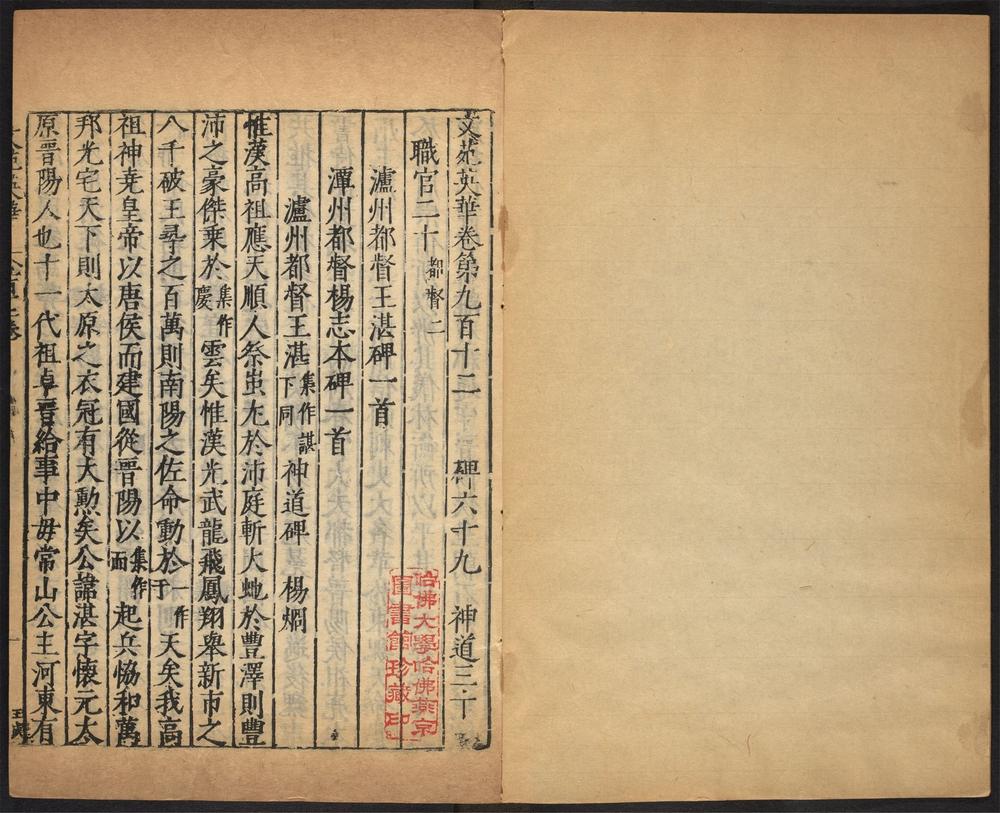 文苑英華卷第九百十二　碑六十九　神道三十
職官二十　都督二
瀘州都督王湛碑一首
潭州都督楊志本碑一首
瀘州都督王湛集作諶下同神道碑　楊烱
惟漢高祖應天順人祭蚩尤於沛庭斬大虵於豐澤則豐
沛之豪傑乘於集作慶雲矣惟漢光武龍飛鳳翔舉新市之
八千破王尋之百萬則南陽之佐命動於一作于天矣我高
祖神堯皇帝以唐侯而建國從晋陽以集作而起兵恊和萬
邦光宅天下則太原之衣冠有大勲矣公諱湛字懷元太
原晋陽人也十一代祖卓晋給事中毋常山公主河東有
哈佛大學哈佛燕京
圖書館珍藏印